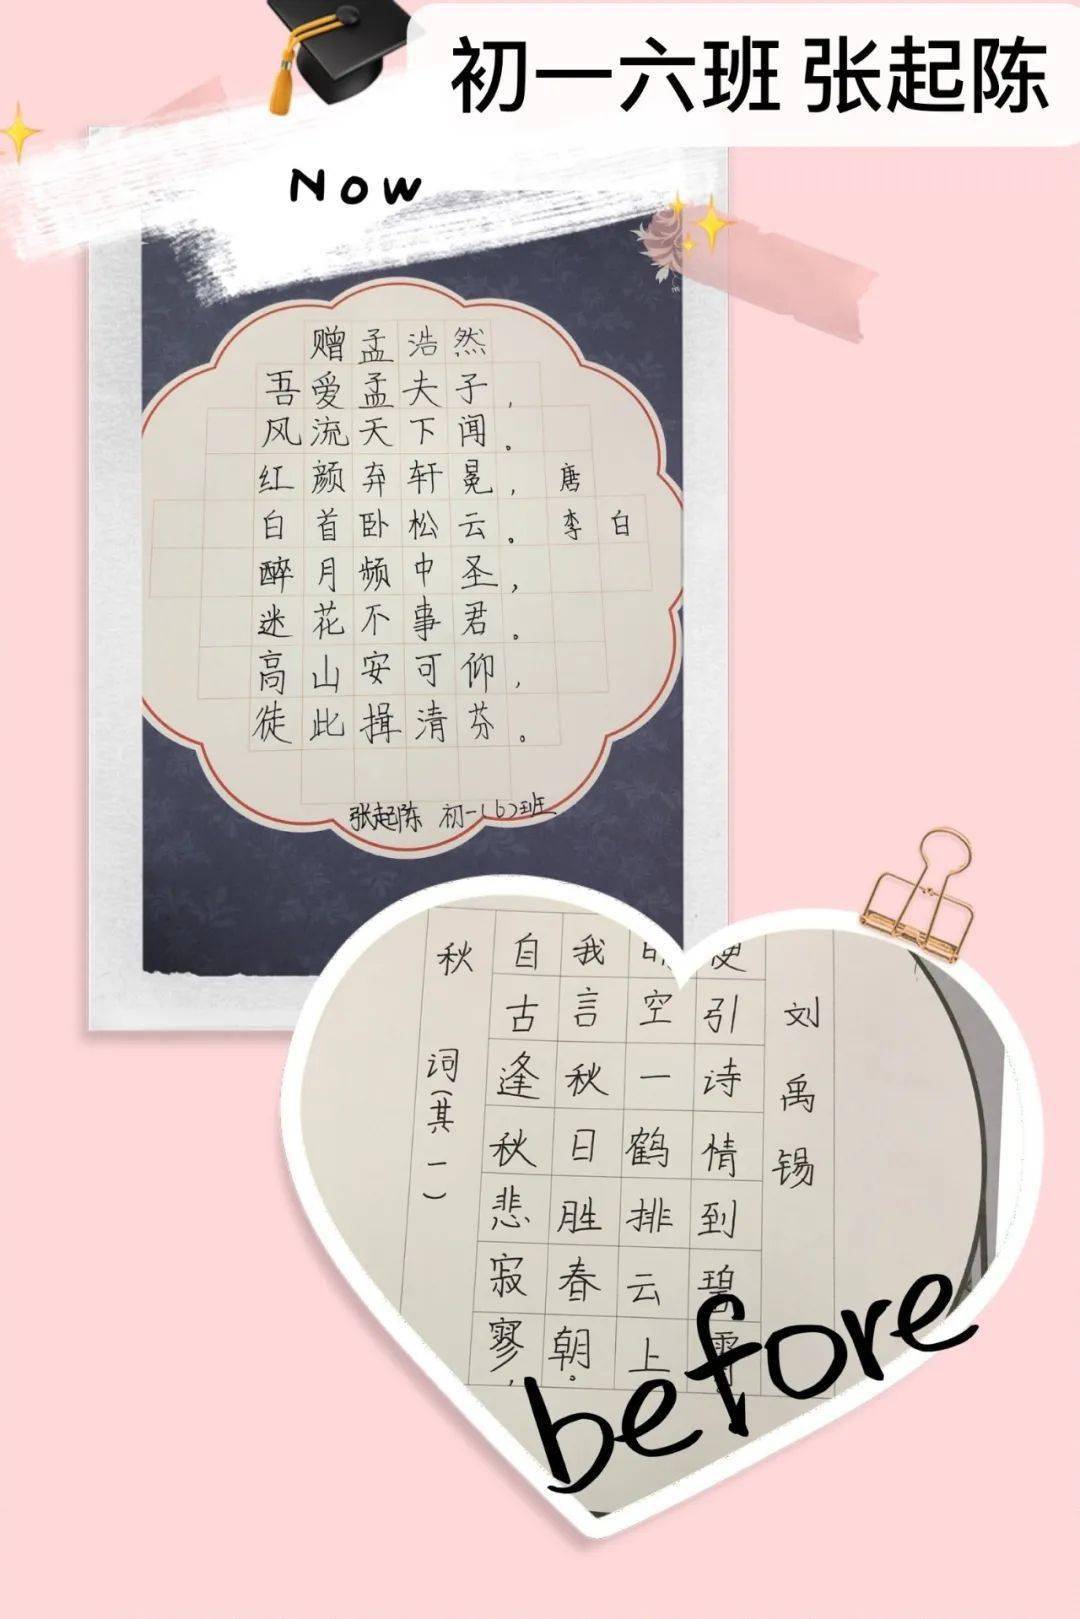 初一六班 张起陈
Now
赠孟浩然
吾爱孟夫子，
风流天下闻。
红颜弃轩冕，
唐
白首卧松云。
李白
醉月频中圣，
迷花不事君。
高山安可仰，
徒此揖清芬。
张起陈 初一(6)班
秋词(其一)
自古逢秋悲寂寥，
我言秋日胜春朝。
空一鹤排云上
便引诗情到碧
刘禹锡
before